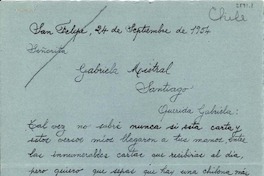 Chile
San Felipe, 24 de Septiembre de 1954
Señorita
Gabriela Mistral
Santiago
Querida Gabriela:
Tal vez no sabré nunca si esta carta y
estos versos míos llegaron a tus manos. Entre
las innumerables cartas que recibirás el día,
pero quiero que sepas que hay una chilena más